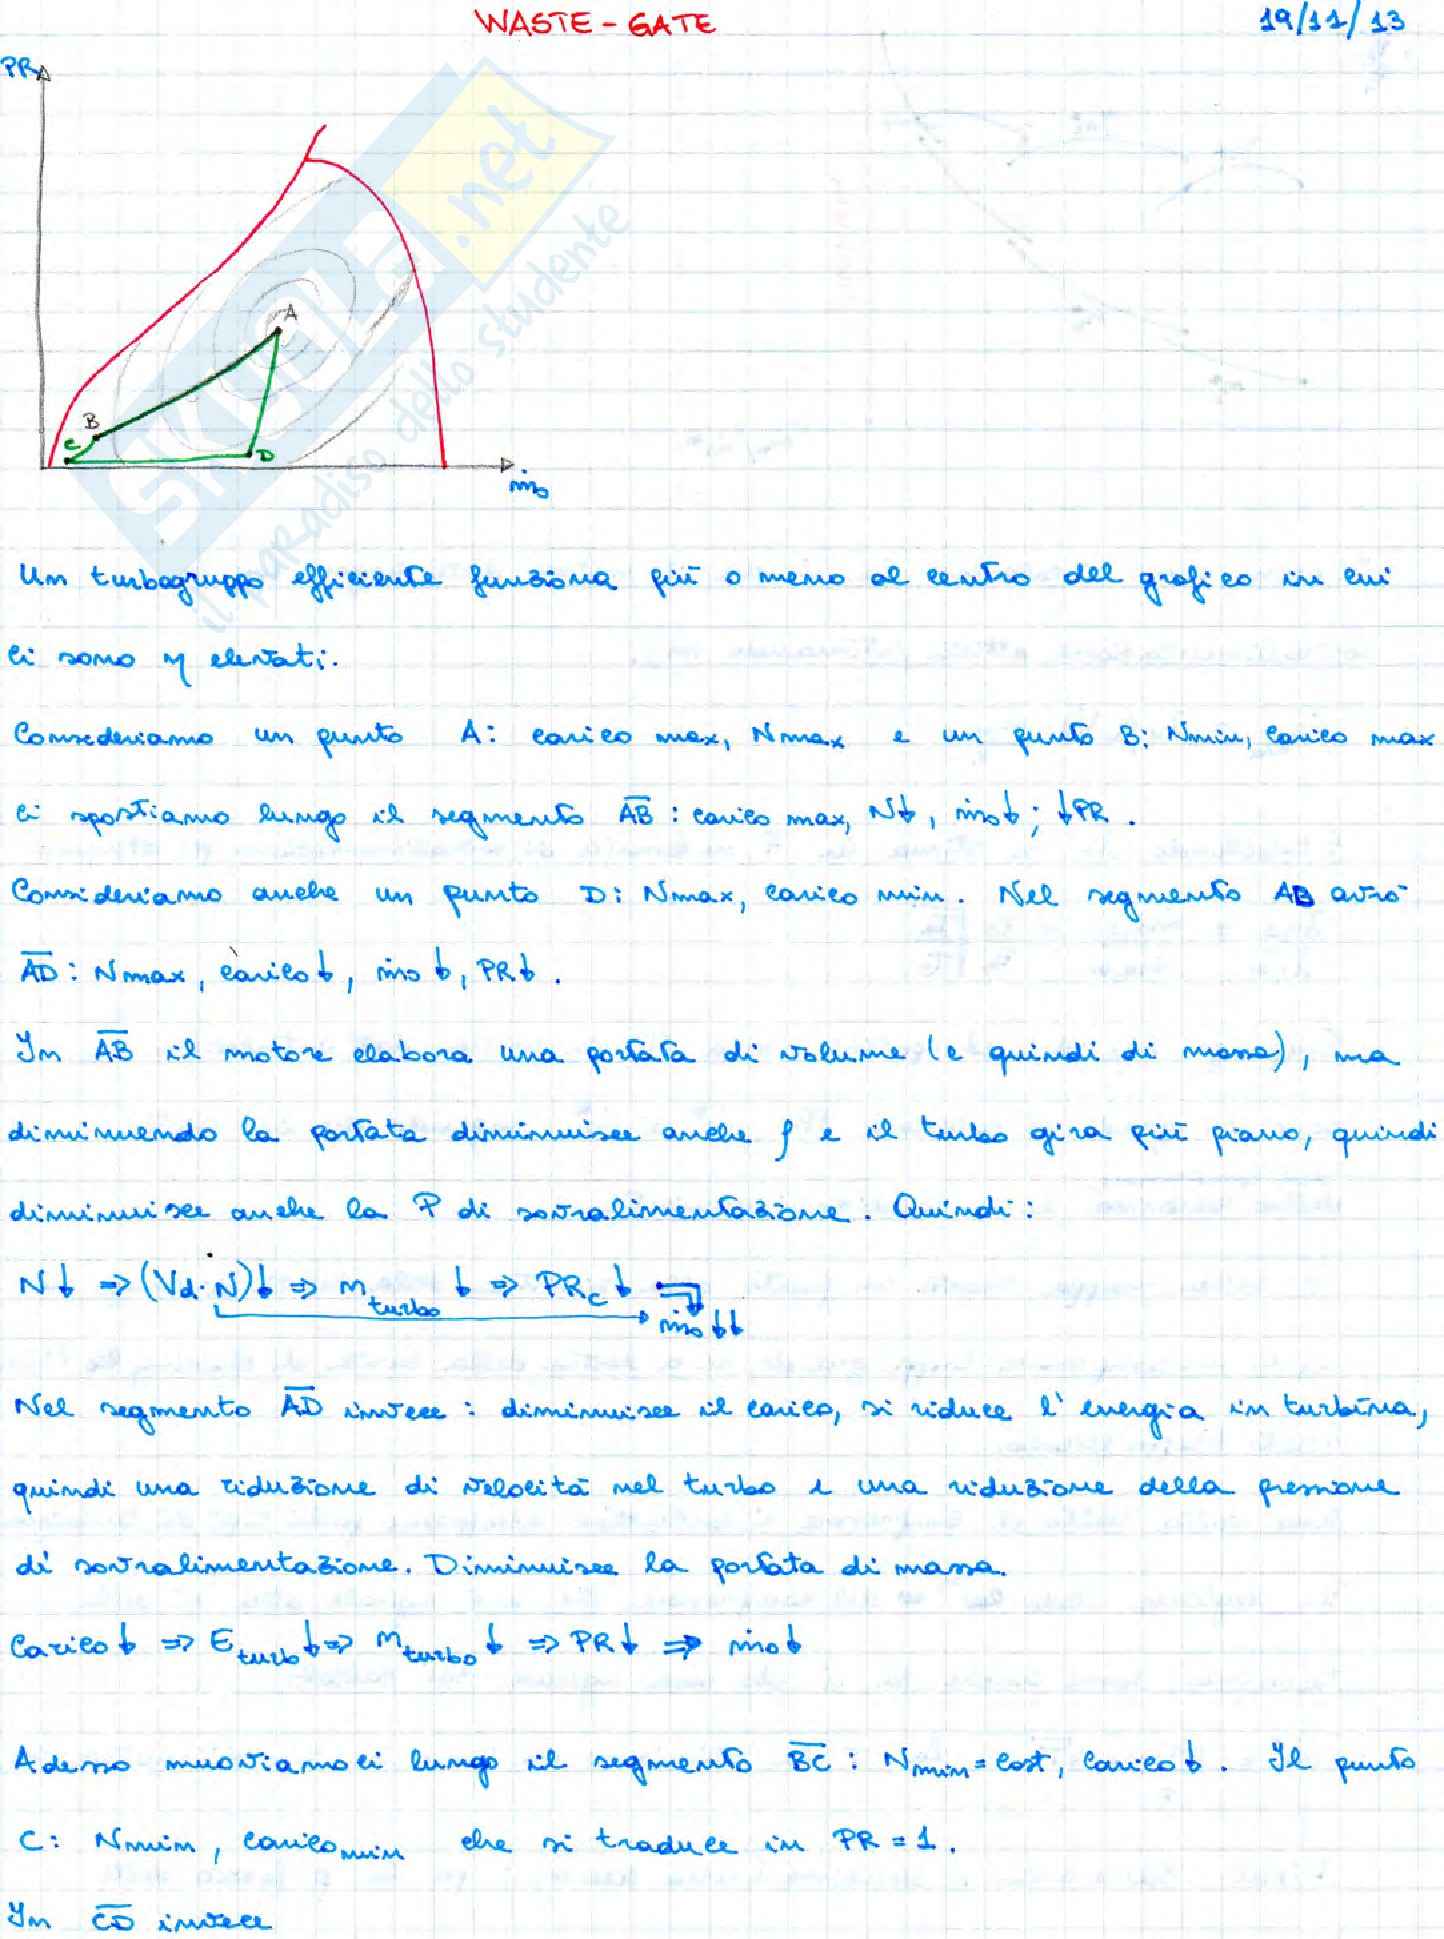 WASTE-GATE
19/11/13
PR
A
B
C
D
ṁo
SKUOLA.net
il paradiso dello studente
Un turbogruppo efficiente funziona più o meno al centro del grafico in cui
ci sono η elevati.
Consideriamo un punto A: carico max, Nmax e un punto B: Nmin, carico max
ci spostiamo lungo il segmento AB: carico max, N↓, ṁo↓; ↓PR.
Consideriamo anche un punto D: Nmax, carico min. Nel segmento AB avrò
AD: Nmax, carico↓, ṁo↓, PR↓.
In AB il motore elabora una portata di volume (e quindi di massa), ma
diminuendo la portata diminuisce anche ρ e il turbo gira più piano, quindi
diminuisce anche la P di sovralimentazione. Quindi:
N↓ ⇒ (Vd·N)↓ ⇒ n turbo ↓ ⇒ PRc↓
ṁo↓↓
Nel segmento AD invece: diminuisce il carico, si riduce l'energia in turbina,
quindi una riduzione di velocità nel turbo e una riduzione della pressione
di sovralimentazione. Diminuisce la portata di massa.
Carico↓ ⇒ Eturb↓ ⇒ nturbo↓ ⇒ PR↓ ⇒ ṁo↓
Adesso muoviamoci lungo il segmento BC: Nmin=cost, carico↓. Il punto
C: Nmin, carico min che si traduce in PR=1.
In CD invece